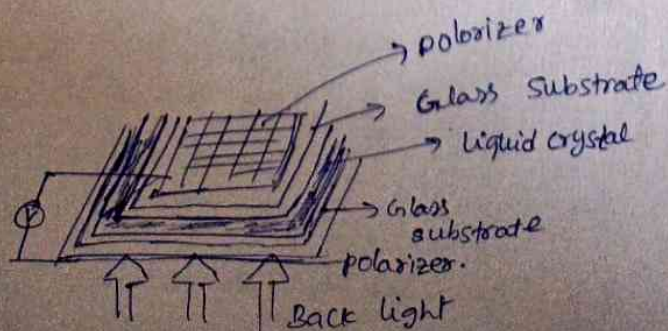 polorizer
Glass substrate
liquid crystal
Glass
substrate
polarizer.
V
Back light